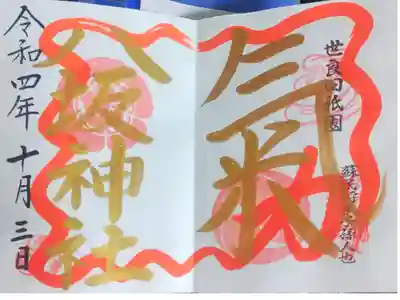 世良田祇園
氣
孫人也
八坂神社
令和四年 十月 三日